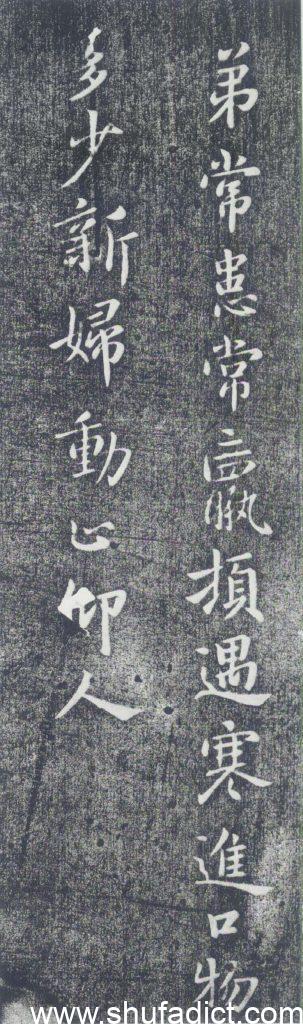 弟常患常羸頓遇寒進口物
多少新婦動止仰人
www.shufadict.com